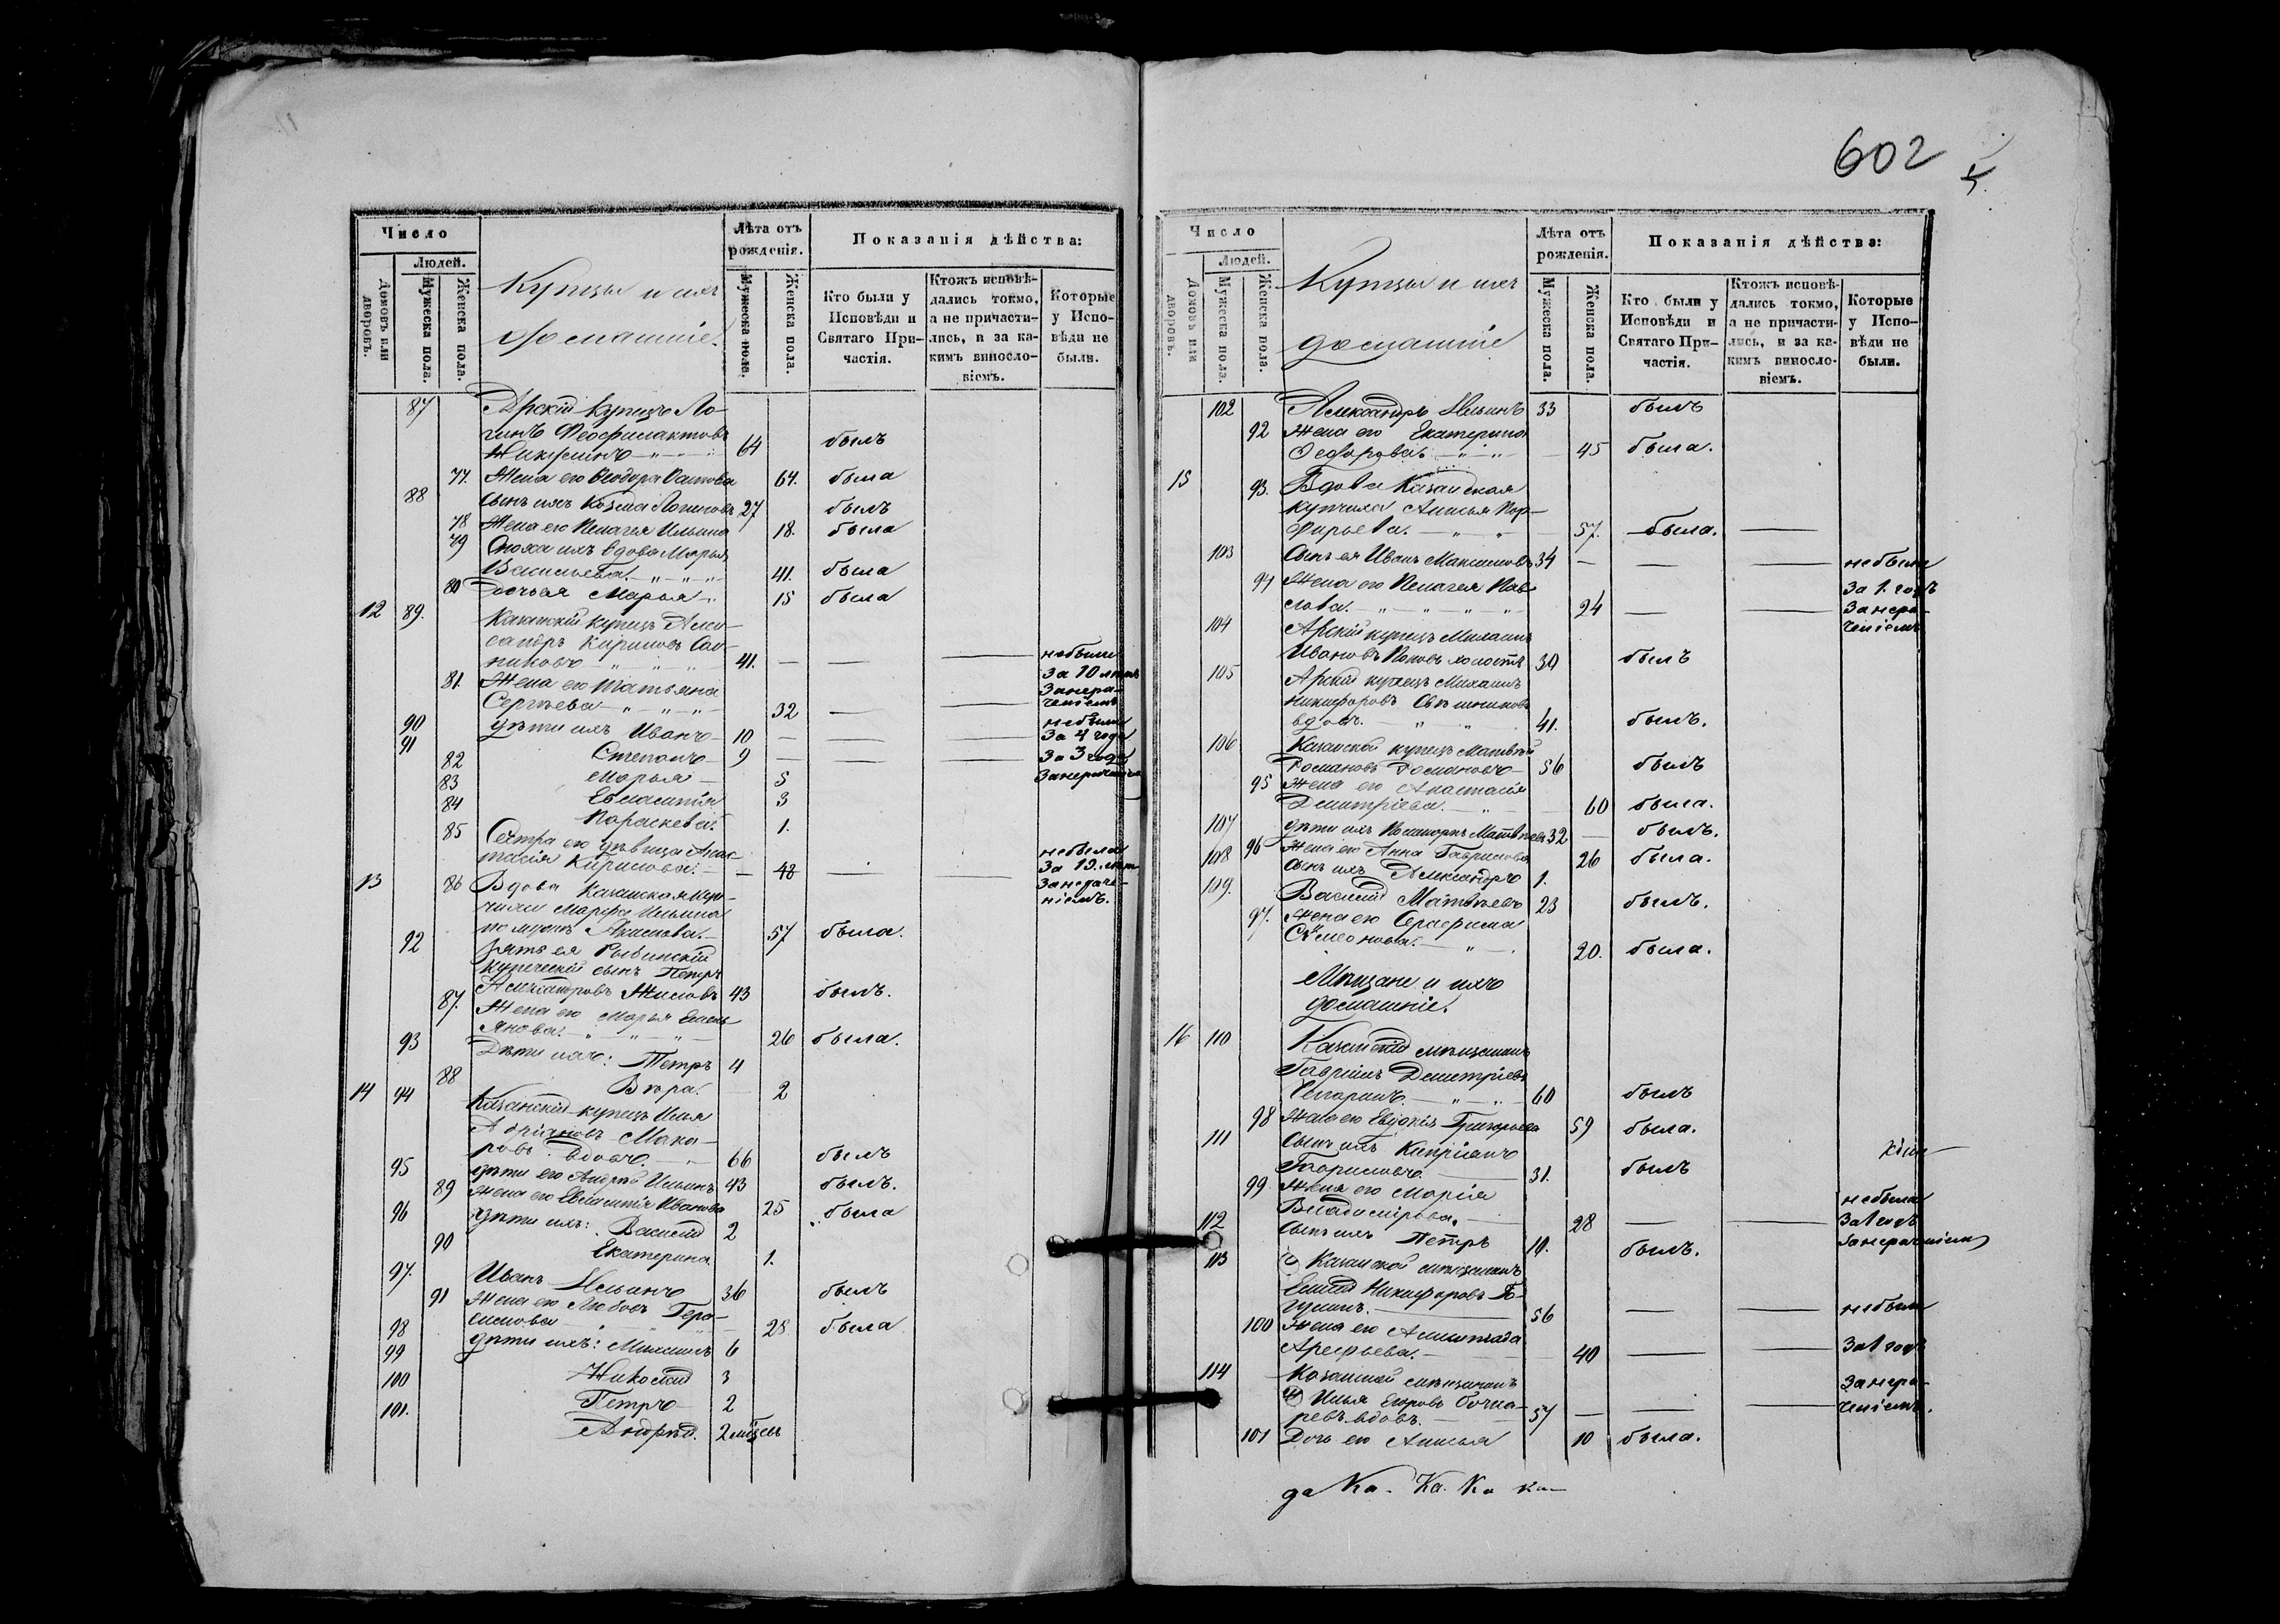 602
Число
Людей.
Домовъ или дворовъ.
Мужеска пола.
Женска пола.
Купцы и ихъ
домашніе.
Лѣта отъ рожденія.
Мужеска пола.
Женска пола.
Показанія дѣйства:
Кто были у Исповѣди и Святаго Причастія.
Ктожъ исповѣдались токмо, а не причастились, и за какимъ винословіемъ.
Которые у Исповѣди не были.
87 Арскій купецъ Ло-
гинъ Феофилактовъ
64 былъ
77. Жена его Феодора 64. была
88 Сынъ ихъ Козма Логиновъ 27 былъ
78 Жена его Пелагея Ильина 18. была
79 Сноха ихъ вдова Марья
Васильева. 41. была
80 Дочь ея Марья 15 была
12 89. Казанскій купецъ Алек-
сандръ Кириловъ
41. — — — небыли
81. Жена его Татьяна За 10 лѣтъ
Сергѣева 32 — — Занера-
ченіемъ
90 Дѣти ихъ Иванъ 10 — — — За 4 года
91 Степанъ 9 — — — За 3 года
82 Марья 5
83 Евлампія 3
84 Параскева. 1.
85 Сестра его дѣвица Анас-
тасія Кирилова. 48 — — небыла
За 19 лѣтъ
13 86 Вдова Казанская куп-
чиха Марфа Ильина
по мужѣ 57 была.
92 Зять ея Рыбинскій
купеческій сынъ Петръ
Александровъ Жиловъ 43 былъ.
87. Жена его Марья Емель-
янова. 26 была.
93 Дѣти ихъ: Петръ 4
88 Вѣра. 2
14 94 Казанскій купецъ Илья
Адріановъ Мака-
ровъ вдовъ. 66 былъ
95 Дѣти его Андрей Ильинъ 43 былъ.
89 Жена его Евлампія Иванова 25 была
96 Дѣти ихъ: Василій 2
90 Екатерина 1.
97. Иванъ Ильинъ 36 былъ
91 Жена его Любовь Гера-
симова 28 была
98 Дѣти ихъ: Михаилъ 6
99 Николай 3
100 Петръ 2
101. Андрей. 2 мѣсяц
Число
Людей.
Домовъ или дворовъ.
Мужеска пола.
Женска пола.
Купцы и ихъ
домашніе
Лѣта отъ рожденія.
Мужеска пола.
Женска пола.
Показанія дѣйства:
Кто были у Исповѣди и Святаго Причастія.
Ктожъ исповѣдались токмо, а не причастились, и за какимъ винословіемъ.
Которые у Исповѣди не были.
102 Александръ Ильинъ 33 былъ
92 Жена его Екатерина
Феодорова. 45 была.
15 93. Вдова Казанская
купчиха Анисья Пор-
фирьева. 57. была. —
103 Сынъ ея Иванъ Максимовъ 34 — — — небыли
94 Жена его Пелагея Пав- За 1. годъ
лова. 24 — — Занера-
ченіемъ
104 Арскій купецъ Михаилъ
Ивановъ Поповъ холостъ 30 былъ
105 Арскій купецъ Михаилъ
Никифоровъ
вдовъ. 41. былъ.
106 Казанской купецъ Матвѣй
Романовъ Романовъ 56 былъ
95 Жена его Анастасія
Дмитріева. 60 была.
107 Дѣти ихъ Матвѣевъ 32 — былъ.
96 Жена его Анна Гаврилова 26 была.
108 Сынъ ихъ Александръ 1.
109. Василій Матвѣевъ 23 былъ.
97. Жена его Серафима
Симеонова. 20. была.
Мѣщане и ихъ
домашніе.
16 110 Казанскій мѣщанинъ
Гавріилъ Дмитріевъ
60 былъ
98 Жена его Евдокія Григорьева 59 была.
111 Сынъ ихъ Кипріанъ
Гавриловъ. 31. былъ
99 Жена его Марія
Владимірова. 28 — — небыла
За 1 годъ
112 Сынъ ихъ Петръ 10. былъ.
113 Казанской мѣщанинъ
Никифоровъ
56 — — небыли
100 Жена его
Арефьева. 40 — — За 1 годъ
114 Казанской мѣщанинъ
Илья Егоровъ Бочка-
ревъ вдовъ. 57 — — —
101 Дочь его Анисья 10 была.
да Ка. Ка. Ка ка